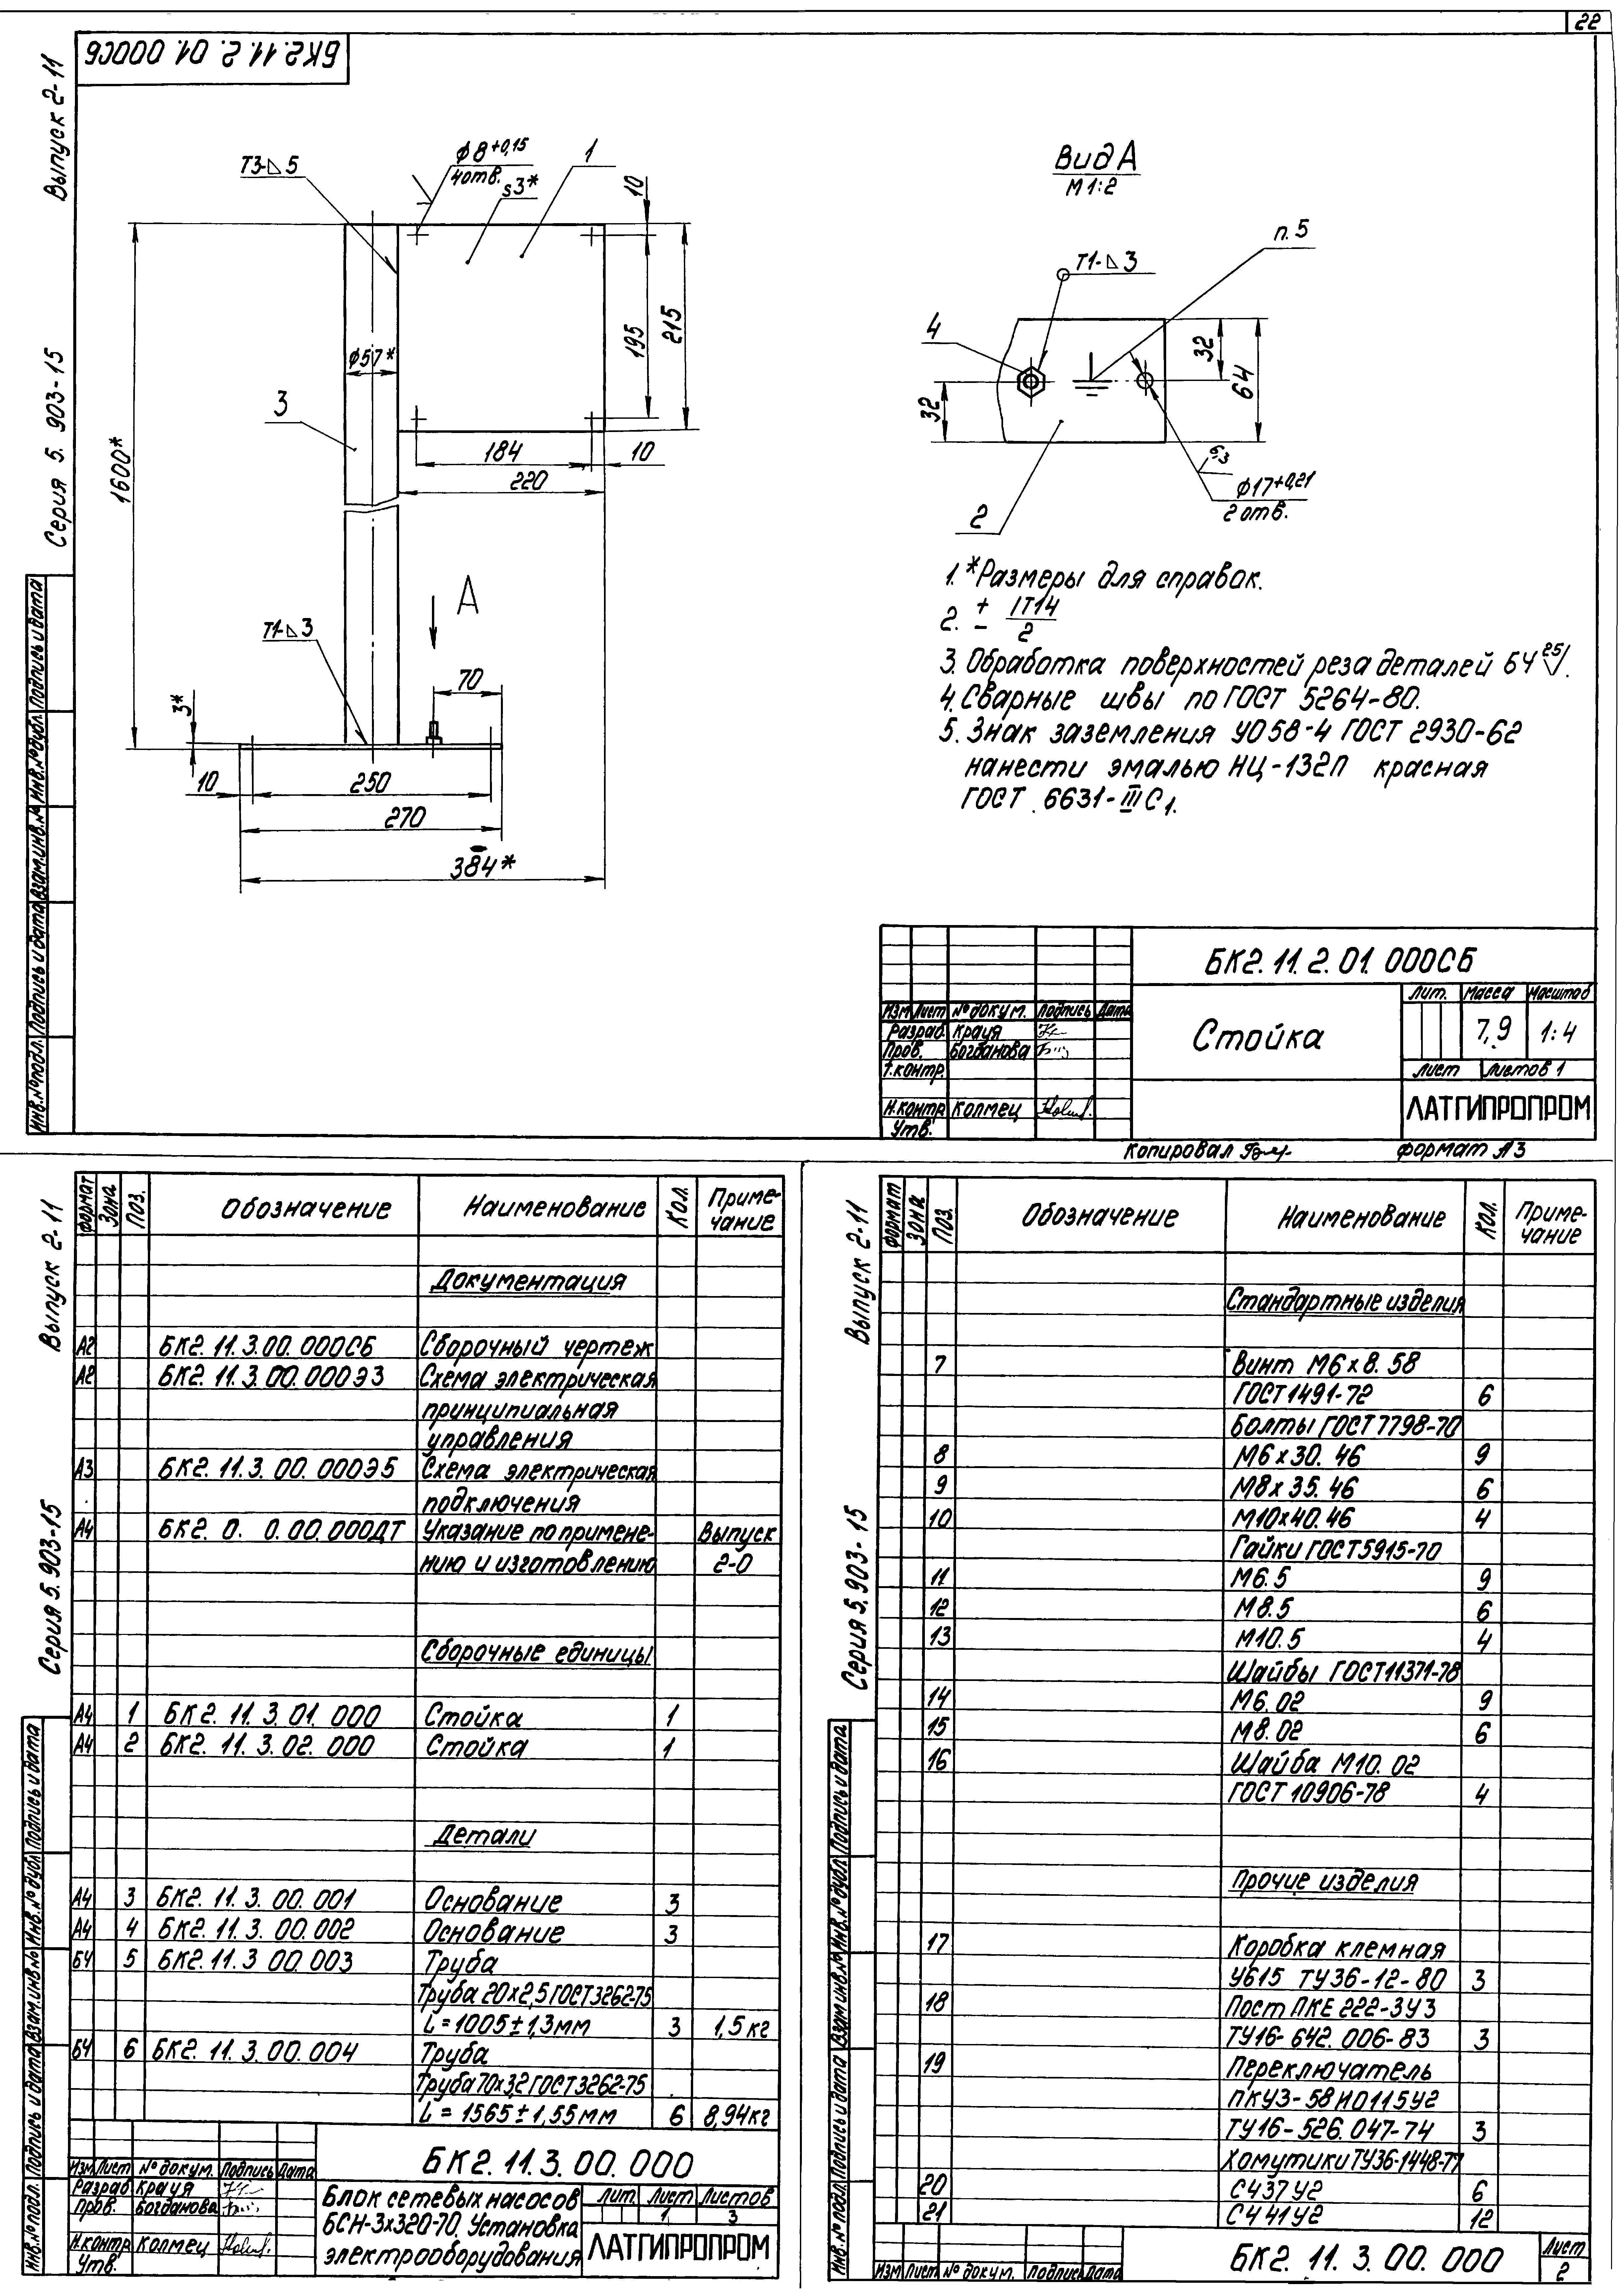 22
БК2.11.2.01 000СБ
Выпуск 2-11
Серия 5.903-15
Т3-◺5
ϕ8+0,15
4отв.
s3*
1
10
195
215
1600*
ϕ57*
3
184
10
220
А
Т1-◺3
70
3*
10
250
270
384*
Вид А
М1:2
п.5
Т1-◺3
4
32
32
64
2
6,3
ϕ17+0,21
2 отв.
1.*Размеры для справок.
2. ± IT14/2
3. Обработка поверхностей реза деталей БЧ 25/.
4. Сварные швы по ГОСТ 5264-80.
5. Знак заземления У058-4 ГОСТ 2930-62
нанести эмалью НЦ-132П красная
ГОСТ 6631-III С1.
Инв.№подл. Подпись и дата Взам.инв.№ Инв.№дубл. Подпись и дата
БК2.11.2.01.000СБ
Стойка
Лит. Масса Масштаб
7,9 1:4
Лист Листов 1
ЛАТГИПРОПРОМ
Изм Лист №докум. Подпись Дата
Разраб. Крауя
Пров. Богданова
Т.контр.
Н.контр Колмец
Утв.
Копировал
Формат А3
Выпуск 2-11
Серия 5.903-15
Формат Зона Поз. Обозначение Наименование Кол. Приме-
чание
Документация
А2 БК2.11.3.00.000СБ Сборочный чертеж
А2 БК2.11.3.00.000Э3 Схема электрическая
принципиальная
управления
А3 БК2.11.3.00.000Э5 Схема электрическая
подключения
А4 БК2.0. 0.00.000ДТ Указание по примене- Выпуск
нию и изготовлению 2-0
Сборочные единицы
А4 1 БК2.11.3.01.000 Стойка 1
А4 2 БК2.11.3.02.000 Стойка 1
Детали
А4 3 БК2.11.3.00.001 Основание 3
А4 4 БК2.11.3.00.002 Основание 3
БЧ 5 БК2.11.3.00.003 Труба
Труба 20х2,5 ГОСТ3262-75
L=1005±1,3мм 3 1,5кг
БЧ 6 БК2.11.3.00.004 Труба
Труба 70х3,2 ГОСТ3262-75
L=1565±1,55мм 6 8,94кг
Инв.№подл. Подпись и дата Взам.инв.№ Инв.№дубл. Подпись и дата
БК2.11.3.00.000
Изм Лист №докум. Подпись Дата
Разраб. Крауя
Пров. Богданова
Н.контр Колмец
Утв.
Блок сетевых насосов
БСН-3х320-70. Установка
электрооборудования
Лит. Лист Листов
1 3
ЛАТГИПРОПРОМ
Выпуск 2-11
Серия 5.903-15
Формат Зона Поз. Обозначение Наименование Кол. Приме-
чание
Стандартные изделия
7 Винт М6х8.58
ГОСТ1491-72 6
Болты ГОСТ7798-70
8 М6х30.46 9
9 М8х35.46 6
10 М10х40.46 4
Гайки ГОСТ5915-70
11 М6.5 9
12 М8.5 6
13 М10.5 4
Шайбы ГОСТ11371-78
14 М6.02 9
15 М8.02 6
16 Шайба М10.02
ГОСТ 10906-78 4
Прочие изделия
17 Коробка клемная
У615 ТУ36-12-80 3
18 Пост ПКЕ 222-3У3
ТУ16-642.006-83 3
19 Переключатель
ПКУ3-58И0115У2
ТУ16-526.047-74 3
Хомутики ТУ36-1448-77
20 С437У2 6
21 С441У2 12
Инв.№подл. Подпись и дата Взам.инв.№ Инв.№дубл. Подпись и дата
Изм Лист №докум. Подпись Дата
БК2.11.3.00.000
Лист
2